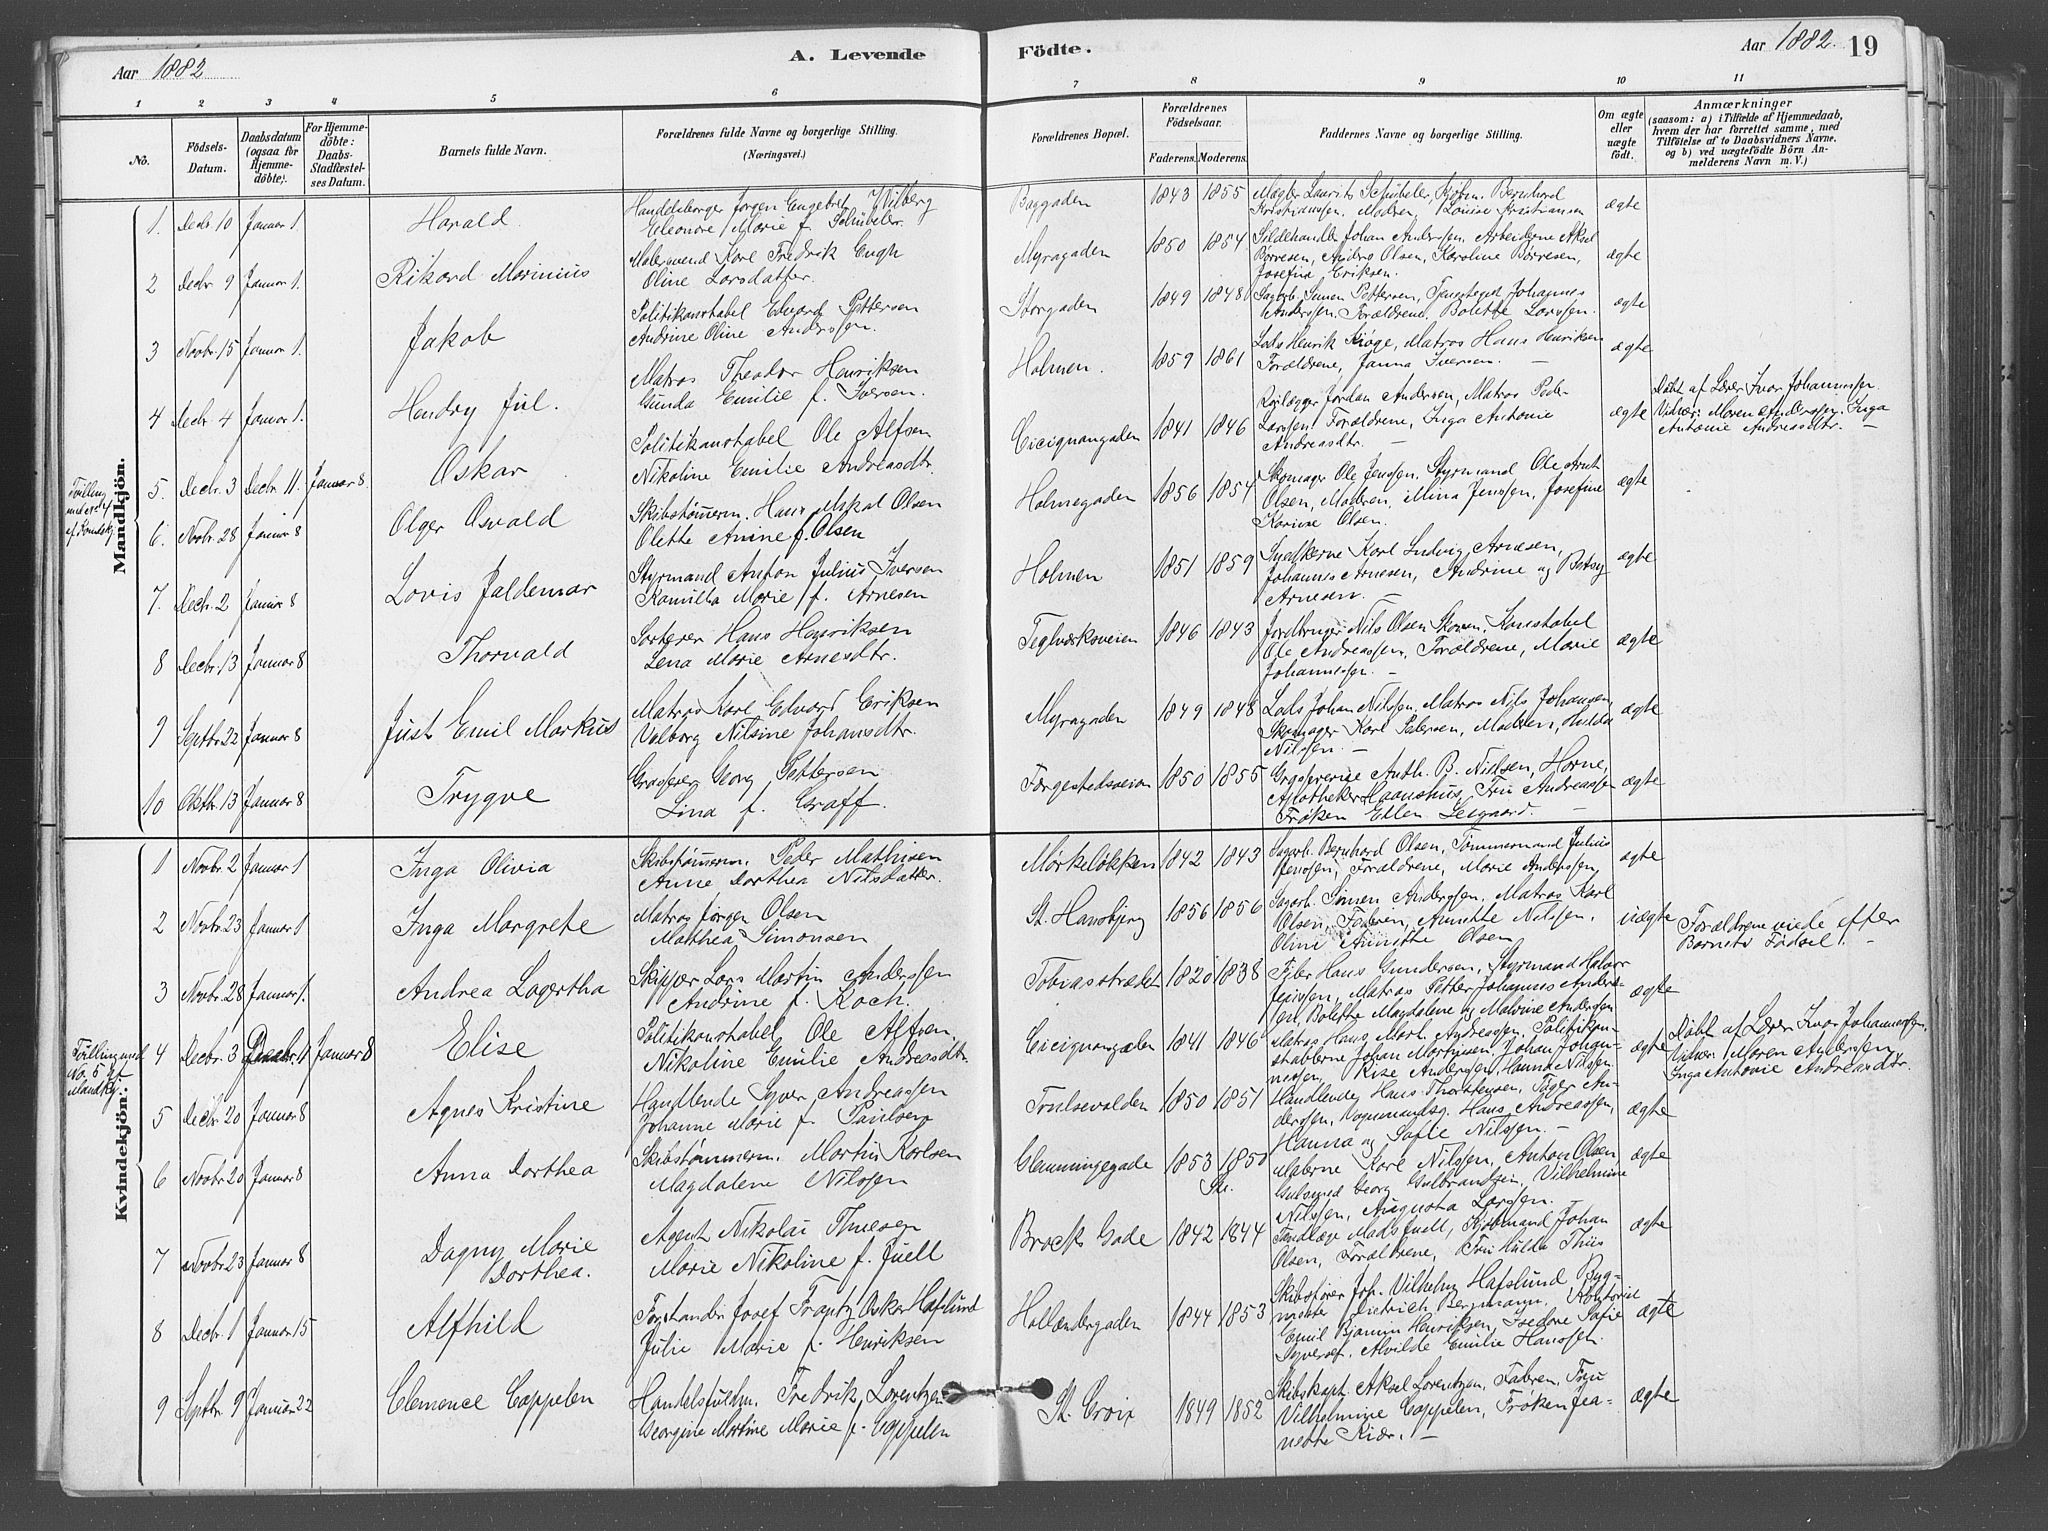 Aar 1882
A. Levende
Födte.
Aar 1882.
19
1 2 3 4 5 6 7 8 9 10 11
No.
Födsels-Datum.
Daabsdatum (ogsaa for Hjemmedöbte).
For Hjemmedöbte: Daabs-Stadfæstelses Datum.
Barnets fulde Navn.
Forældrenes fulde Navne og borgerlige Stilling.
(Næringsvei.)
Forældrenes Bopæl.
Forældrenes Födselsaar.
Faderens. Moderens.
Faddernes Navne og borgerlige Stilling.
Om ægte eller uægte födt.
Anmærkninger
(saasom: a) i Tilfælde af Hjemmedaab, hvem der har forrettet samme, med Tilföielse af to Daabsvidners Navne, og b) ved uægtefödte Börn Anmelderens Navn m. V.)
Mandkjön.
1. Decbr. 10 Januar 1. Harald. Handelsborger Jørgen Engebret Wilberg
Eleonore Marie f. Schübeler.
Baggaden 1843 1855 Mægler Laurits Schübeler, Kjøbm. Bernhard
Kristianssen. Modren, Louise Kristiansen ægte
2 Decbr 9 Januar 1. Rikard Marinius Malersvend Karl Fredrik Engh
Oline Larsdatter.
Myragaden 1850 1854 Sildehandler Johan Anderssen. Arbeiderne Aksel
Børresen, Andrs Olsen, Karoline Børresen,
Josefine Eriksen. ægte
3 Novbr. 15 Januar 1. Jakob Politikonstabel Edvard Pettersen
Andrine Oline Anderssen.
Storgaden 1849 1848 Sagarb. Simen Pettersen, Tjenestegut Johannes
Anderssen. Forældrene. Bolette Larssen. ægte
4 Decbr. 4 Januar 1. Hendry Jul. Matros Theodor Henriksen
Gunda Emilie f. Iversen.
Holmen. 1859 1861 Lods Henrik Kiøge, Matros Hans Henriksen
Forældrene, Janna Iversen. ægte
Tvilling med No 4 af Kvindekj.
5. Decbr. 3 Decbr. 11. Januar 8. Oskar Politikonstabel Ole Alfsen
Nikoline Emilie Andreasdtr.
Cicignongaden 1841 1846 Jordan Andersen, Matros Peder
Larssen, Forældrene, Inga Antonie
Andreasdtr. ægte
Døbt af Lærer Ivar Johannessen.
Vidner: Maren Anderssen. Inga
Antonie Andreasdtr.
6. Novbr. 28 Januar 8 Olger Osvald Skibstømerm. Hans Olsen
Olette Anine f. Olsen
Holmegaden 1856 1854 Skomager Ole Jenssen. Styrmand Ole Arnt
Olsen, Modren, Mina Jenssen, Josefine
Karine Olsen. ægte
7. Decbr. 2 Januar 8 Lovis Jaldemar Styrmand Anton Julius Iversen
Kamilla Marie f. Arnesen
Holmen 1851 1859 Snedkerne Karl Ludvig Arnesen,
Johannes Arnesen, Andrine og Betsy
Arnesen. ægte
8 Decbr. 13 Januar 8 Thorvald Sorterer Hans Henriksen
Lena Marie Arnesdtr.
Teglværksveien 1846 1843 Jordbruger Nils Olsen Skoven. Konstabel
Ole Andreassen. Forældrene, Marie
Johannessen. ægte
9 Septbr. 22 Januar 8 Just Emil Markus Matros Karl Edvard Eriksen
Valborg Nilsine Johansdtr.
Myragaden 1849 1848 Lods Johan Nilssen, Matros Nils Johansen,
Skomager Karl Petersen, Modren, Hulda
Nilssen. ægte
10 Oktbr. 13 Januar 8 Trygve Grosserer Georg Pettersen
Lina f. Graff.
Færgestedsveien 1850 1855 Grosserene Anth. B. Nilsen, Horne,
Apotheker Haanshus, Fru Andreassen
Frøken Ellen Lesgaard. ægte
Kvindekjön.
1 Novbr. 2 Januar 1 Inga Olivia Skibstømerm. Peder Mathisen
Anne Dorthea Nilsdatter.
Mørkeløkken 1842 1843 Sagarb. Bernhard Olsen, Tømmermand Julius
Jenssen, Forældrene, Marie Anderssen. ægte
2 Novbr. 23 Januar 1 Inga Margrete Matros Jørgen Olsen
Matthea Simonsen
St. Hansbjerg 1856 1856 Sagarb. Simen Anderssen, Matros Karl
Olsen, Fadren, Annette Nilssen.
Oline Annette Olsen uægte
Forældrene viede efter
Barnets Fødsel.
3 Novbr. 28 Januar 1. Andrea Lagertha Skipper Lars Martin Anderssen
Andrine f. Koch.
Tobiasstrædet 1820 1838 Filer Hans Gundersen, Styrmand Halvor
Jenssen, Matros Petter Johannes Andersen,
Bolette Magdalene og Malvine Andersen ægte
Tvilling med No. 5 af Mandkj.
4 Decbr. 3 Decbr. 11 Januar 8 Elise Politikonstabel Ole Alfsen
Nikoline Emilie Andreasdtr.
Cicignongaden 1841 1846 Matros Hans Mart. Andreassen, Politikonstablerne
Johan Martinsen. Johan Johannessen,
Rise Andersen, Hanna Nilssen ægte
Døbt af Lærer Ivar Johannessen.
Vidner: Maren Andersen
Inga Antonie Andreasdtr.
5 Decbr. 20 Januar 8 Agnes Kristine Handlende Syver Andreassen
Johanne Marie f. Paulsen
Trulsevolden 1850 1851 Handlende Hans Thorstensen, Anderssen,
Vognmandsg. Hans Andreassen,
Hanna og Sofie Nilssen. ægte
6 Novbr. 20 Januar 8 Anna Dorthea Skibstømmerm. Martin Karlsen
Magdalene Nilssen
Glemmingegade 1853 1850 Malerne Karl Nilssen, Anton Olsen
Gulsmed Georg Gulbrandsen, Vilhelmine
Nilssen, Augusta Larssen. ægte
7 Novbr. 23 Januar 8 Dagny Marie
Dorthea.
Agent Nikolai Thuesen
Marie Nikoline f. Juell
Brochs Gade 1842 1844 Tandlæge Mads Juell, Kjøbmand Johan
Olsen, Forældrene, Fru Hulda Thiis ægte
8 Decbr. 1 Januar 15 Alfhild Forstander Josef Frantz Oskar Hafslund
Julie Marie f. Henriksen
Hollændergaden 1844 1853 Skibsfører Joh. Vilhelm Hafslund Bygmester
Dietrich Bergmann, Kontorist
Emil Bjamin Henriksen, Fredore Sofie
Syversen. Alvilde Emilie Hanssen. ægte
9 Septbr. 9 Januar 22 Clemence Cappelen Handelsfuldm. Fredrik Lorentzen
Georgine Martine Marie f. Cappelen
St. Croix 1849 1852 Skibskapt. Aksel Lorentzen, Fadren, Fru
Vilhelmine Cappelen, Frøken Jeanette
Kiær. ægte